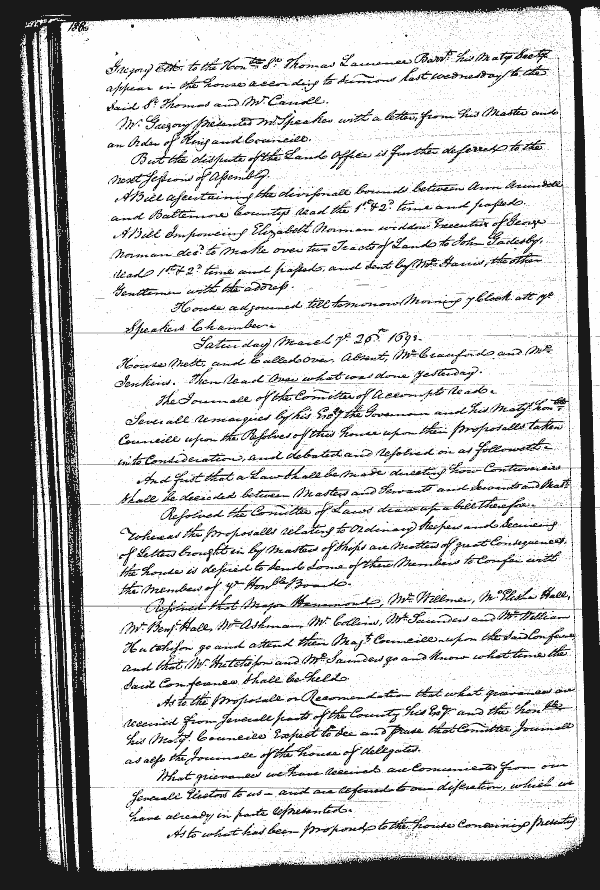 Gregory to the Hon.ble S.r Thomas Laurence Barr.t his Maty Secty
appear in the house according to Sumons last wednesday to the
said S.r Thomas and M.r Carroll.
M.r Gregory presented M.r Speaker with a letter from his Master and
an Order of King and Councill.
But the dispute of the Land Office is further deferred to the
next Sessions of Assembly.
A Bill ascertaining the divisionall bounds between Ann Arundell
and Baltimore Countys read the 1.st & 2.d time and passed.
A Bill Impowering Elizabeth Norman widdow Executrix of George
Norman dec.d to make over two Tracts of Land to John Gadesby,
read 1.st & 2.d time and passed, and sent by M.r Harris, the other
Gentlemen with the address.
House adjourned till tomorrow Morning 7 Clock att y.e
Speakers Chamber.
Saturday March y.e 26.th 1698.
House Mett, and Called over. Absent, M.r Crawford and M.r
Jenkins. Then read over what was done yesterday.
The Journall of the Comittee of Accompts read.
Severall remarques by his Ex.cy the Governour and his Maty.s hon.ble
Councill upon the Resolves of this house upon their proposalls taken
into Consideration, and debated and resolved on as followeth.
And first that a Law shall be made directing how Controversies
shall be decided between Masters and Servants and Servants and Mast.rs
Resolved the Comittee of Laws draw up a bill therefor.
Whereas the proposalls relating to Ordinary Keepers and receiving
of Letters brought in by Masters of Ships are Matters of great Consequence,
the house is desired to send some of their Members to Confer with
the Members of y.e Hon.ble Board.
Resolved that Major Hammond, M.r Willmer, M.r Elisha Hall,
M.r Benj.a Hall, M.r Ashman, M.r Collins, M.r Saunders and M.r William
Hutchison go and attend their Maj.ts Councill upon the said Conference
and that M.r Hutchison and M.r Saunders go and know what time the
said Conference shall be held.
As to the proposall or Recomendation that what grievances are
received from severall parts of the County his Ex.cy and the hon.ble
his Maty.s Councill Expect to see and peruse that Comittee Journall
as also the Journall of the house of delegates.
What grievances we have received are Comunicated from our
severall Electors to us and are referred to our discretion, which we
have already in parte represented.
As to what has been proposed to the house Concerning presenting